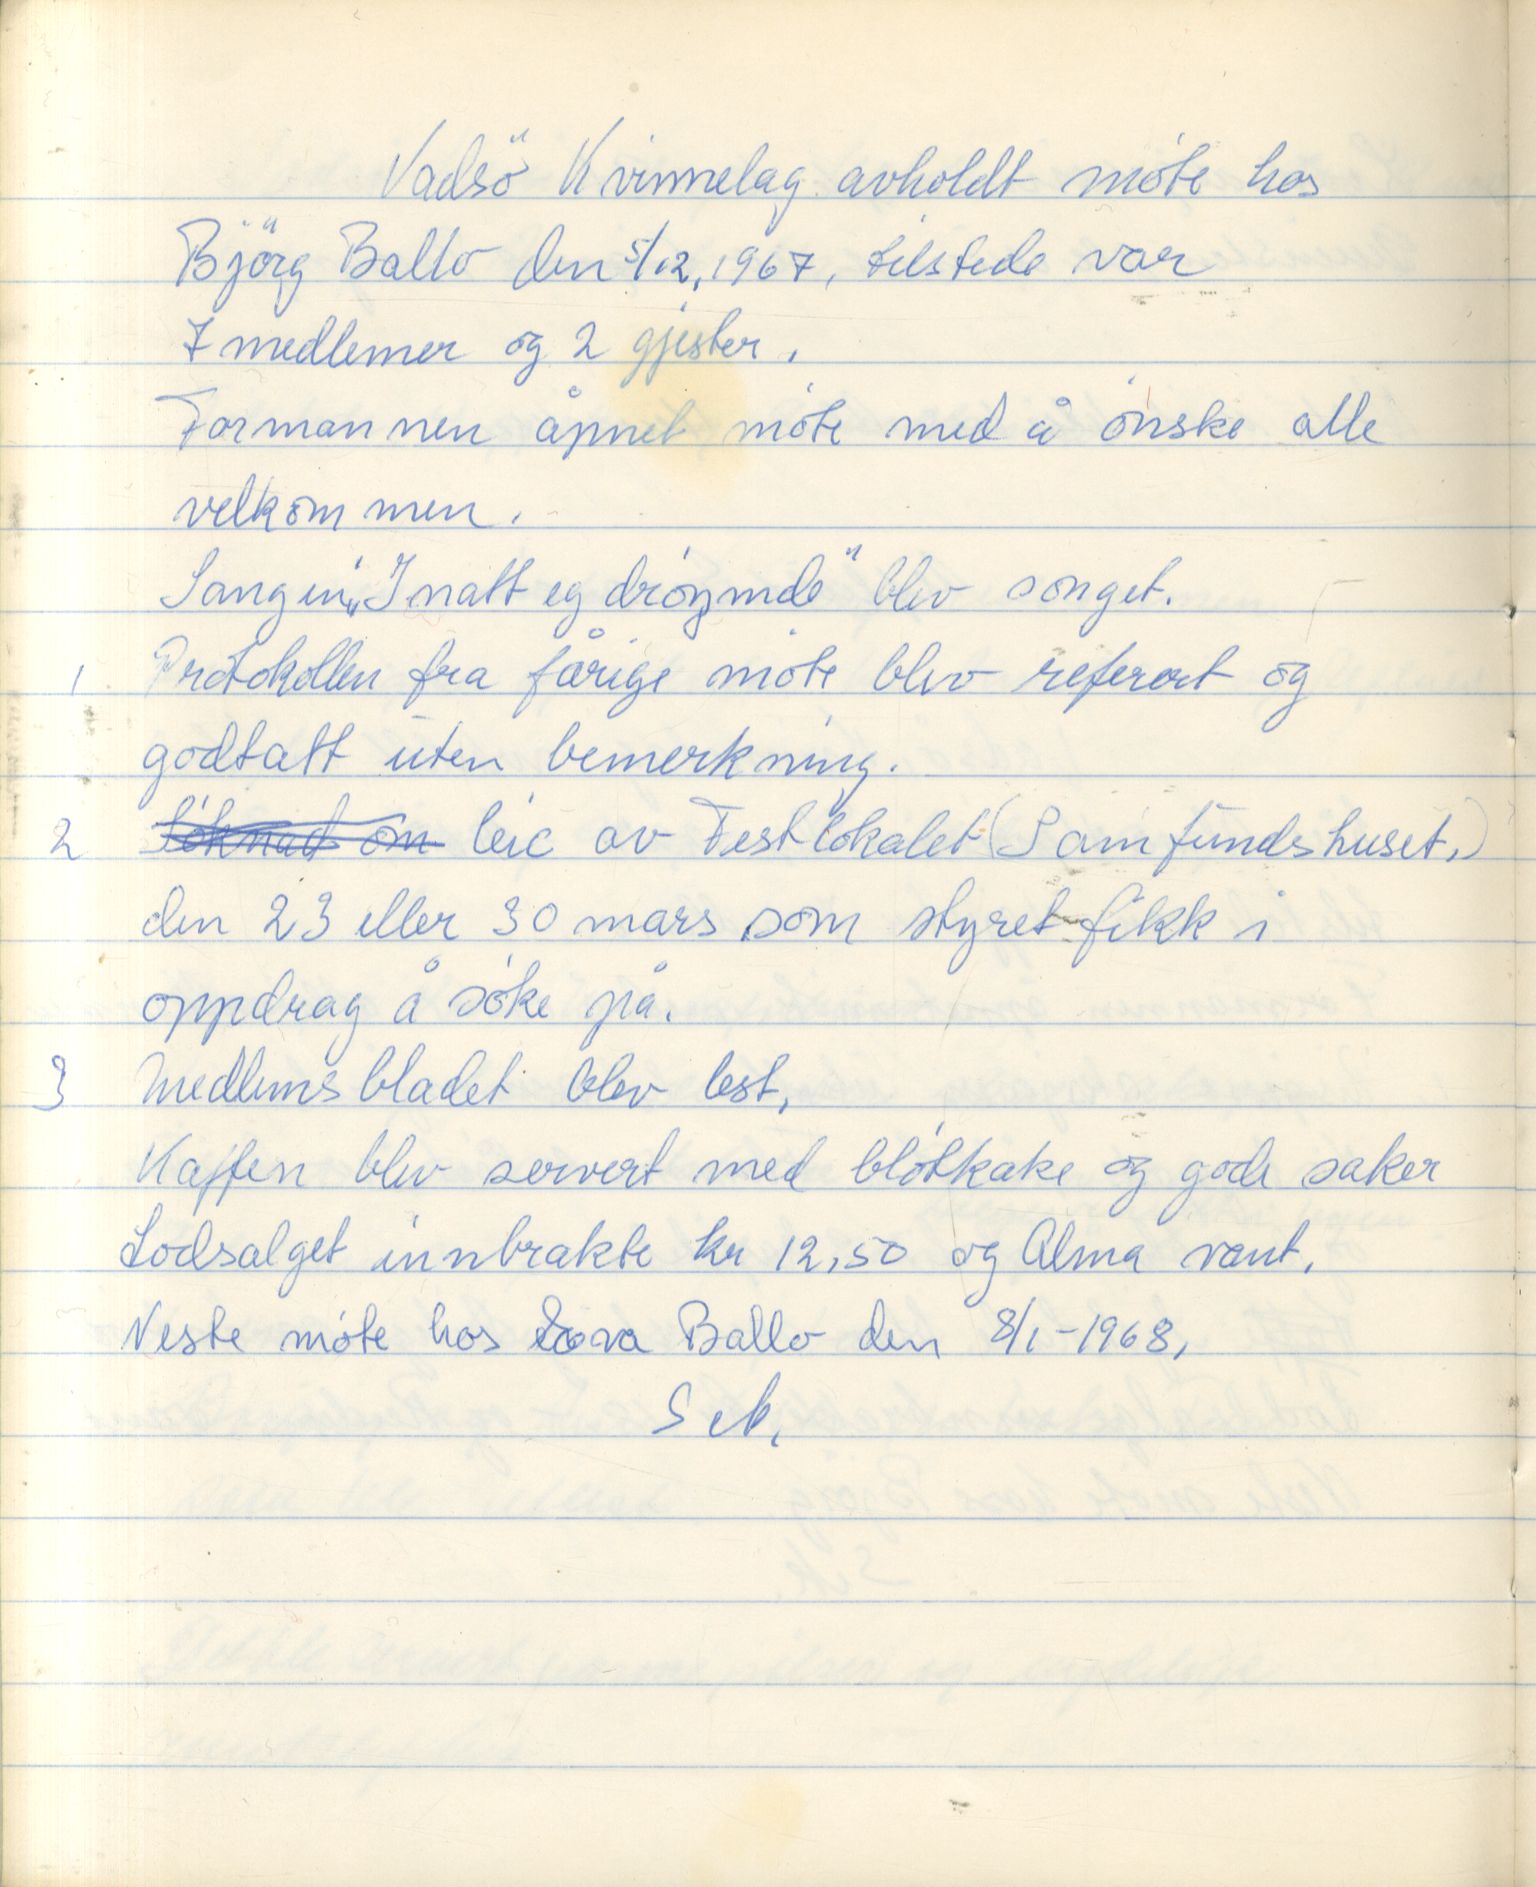 Vadsö Kvinnelag avholdt möte hos
Björg Ballo den 5/12, 1967, tilstede var
7 medlemer og 2 gjester.
Formannen åpnet möte med å önske alle
velkommen.
Sangen „I natt eg dröymde" blev songet.
1 Protokollen fra fårige möte blev referert og
godtatt uten bemerkning.
2 Söknad om leie av Festlokalet (Samfundshuset.)
den 23 eller 30 mars som styret fikk i
oppdrag å söke på.
3 Medlemsbladet blev lest,
Kaffen blev servert med blötkake og gode saker
Lodsalget innbrakte kr 12,50 og Alma vant.
Neste möte hos Ballo den 8/1-1968,
Sek,